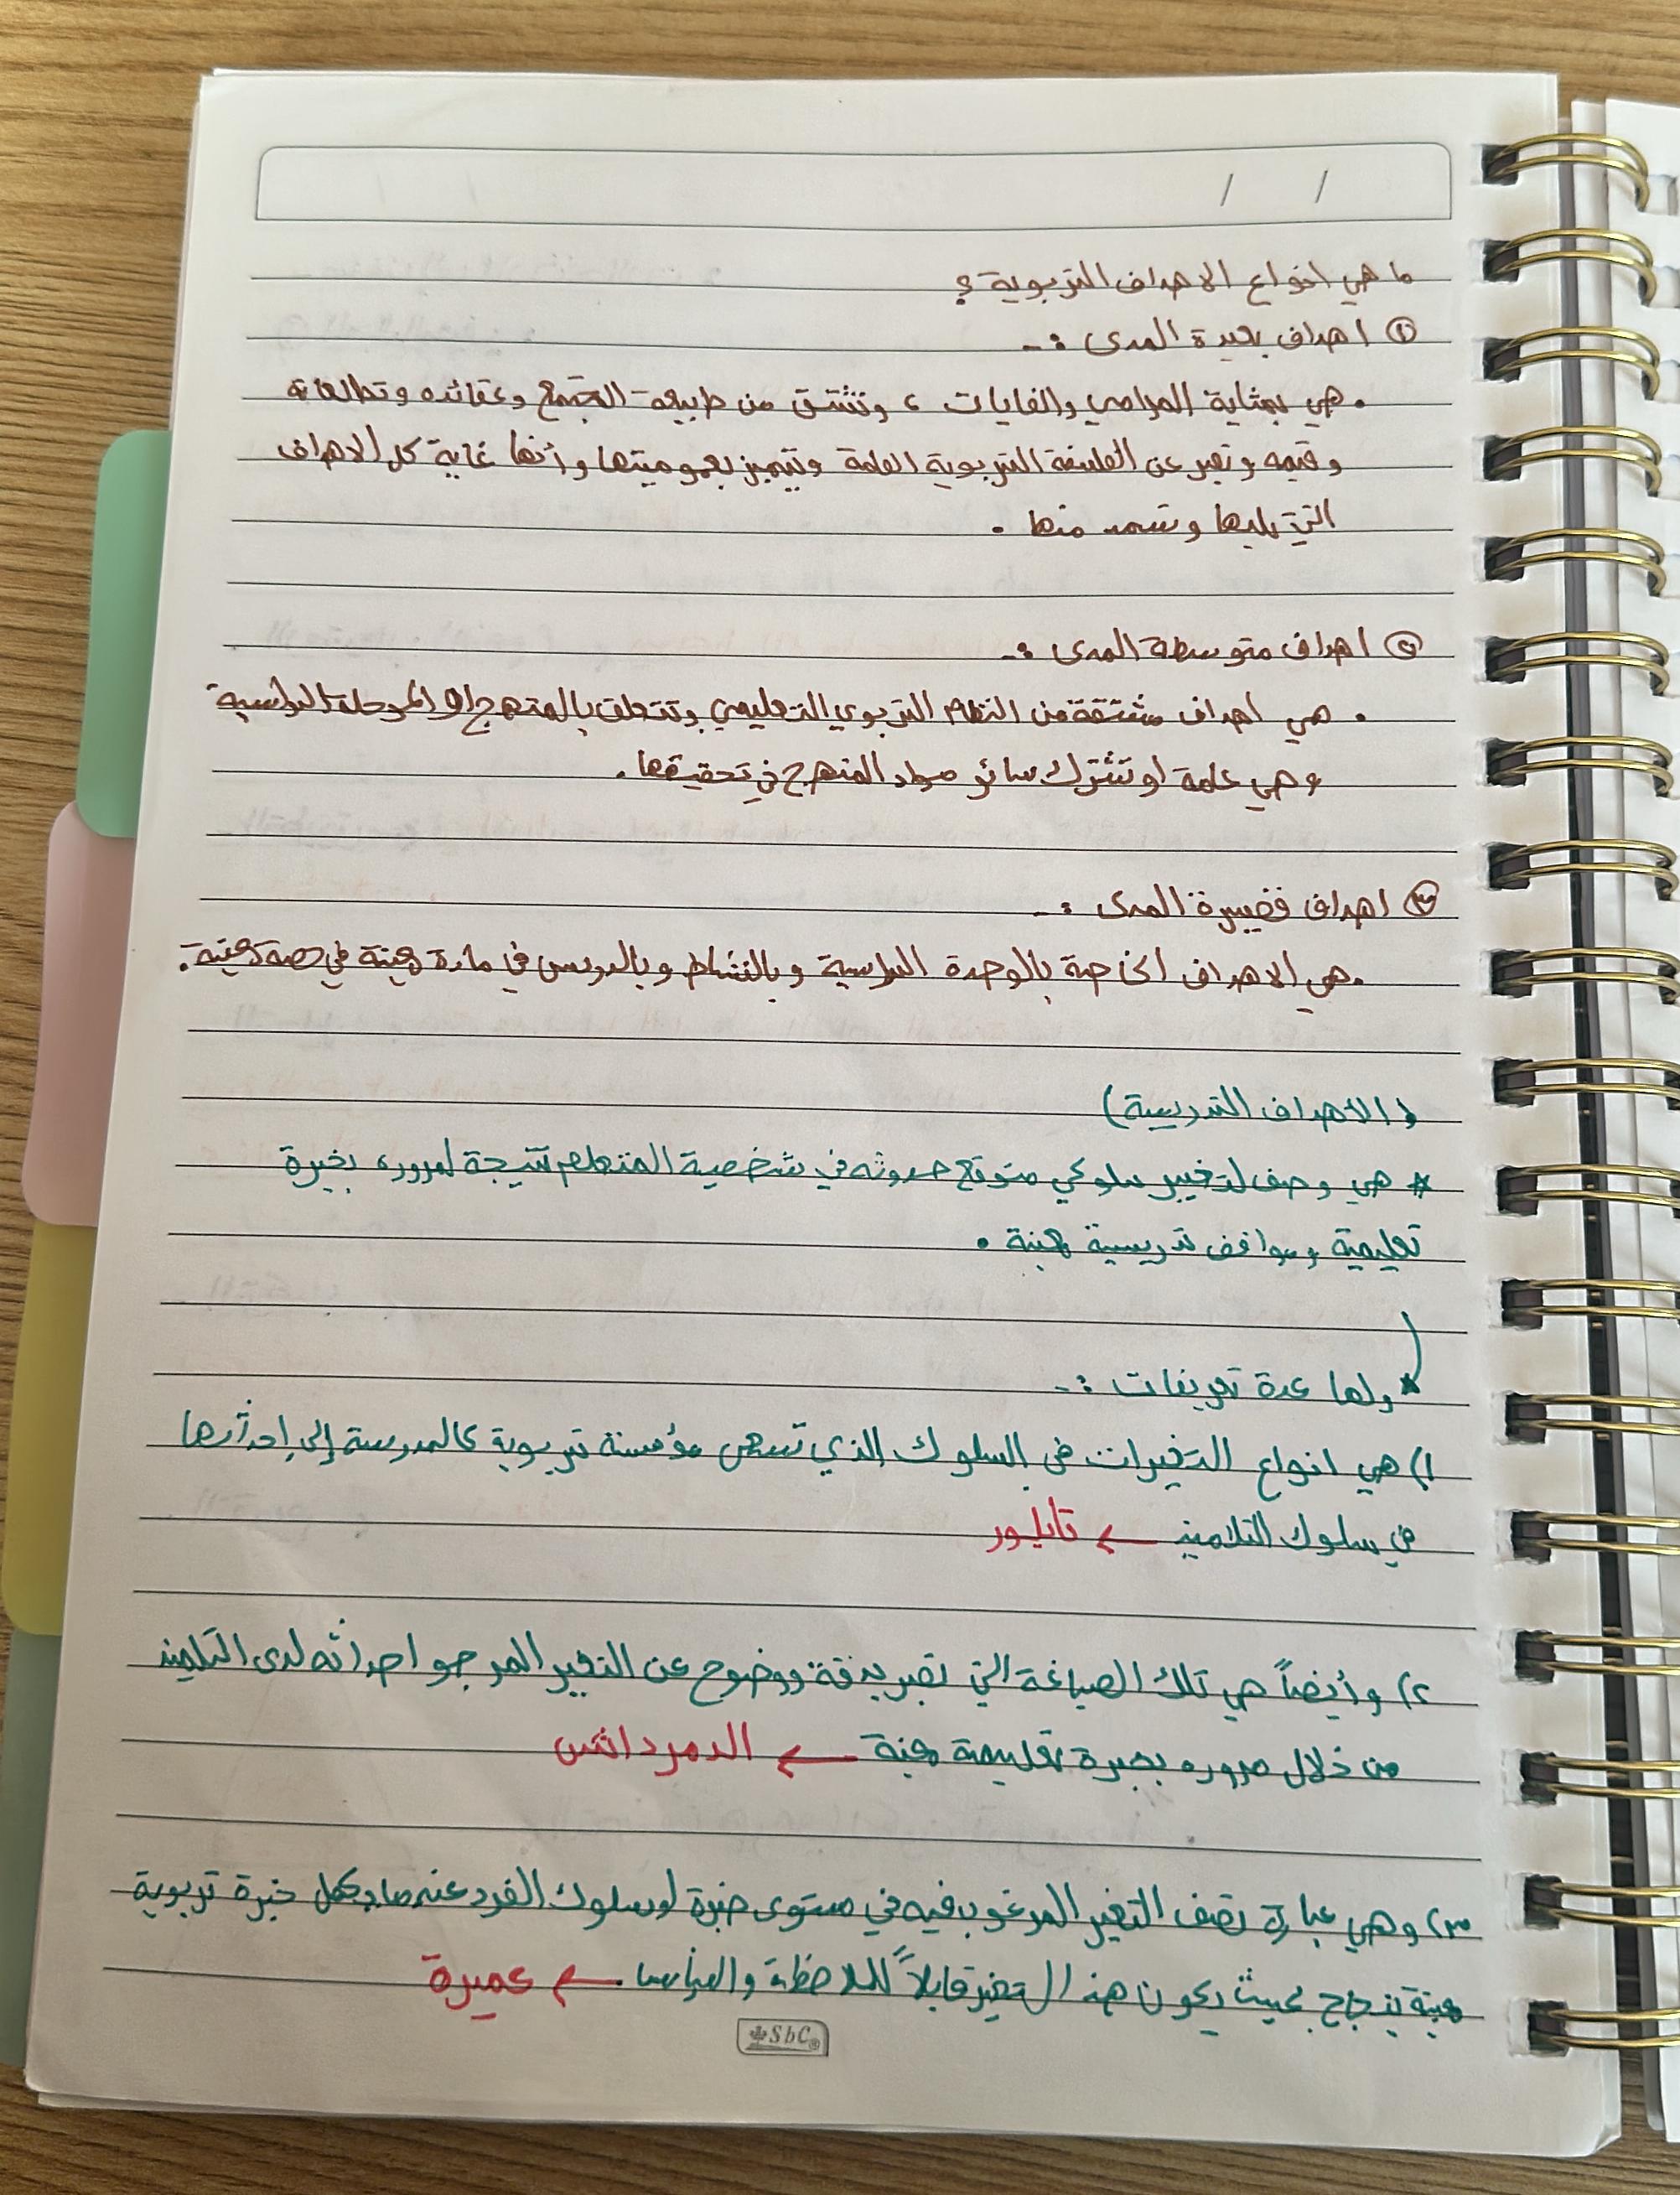 ما هي انواع الاهداف التربوية ؟
① اهداف بعيدة المدى :-
. هي بمثابة المرامي والغايات ، وتشتق من طبيعة المجتمع وعقائده وتطلعاته
وقيمه وتعبر عن الفلسفة التربوية العامة وتتميز بعموميتها وأنها غاية كل الاهداف
التي تليها وتستمد منها .
② اهداف متوسطة المدى :-
. هي اهداف مشتقة من النظام التربوي التعليمي وتتعلق بالمنهج او المرحلة الدراسية
وهي عامة او تشترك سائر مواد المنهج في تحقيقها .
③ اهداف قصيرة المدى :-
. هي الاهداف الخاصة بالوحدة الدراسية وبالنشاط وبالدرس في مادة معينة في حصة معينة .
( الأهداف التدريسية )
* هي وصف لتغيير سلوكي متوقع حدوثه في شخصية المتعلم نتيجة لمروره بخبرة
تعليمية ومواقف تدريسية معينة .
* ولها عدة تعريفات :-
١) هي انواع التغيرات في السلوك الذي تسعى مؤسسة تربوية كالمدرسة إلى إحداثها
في سلوك التلاميذ ← تايلور
٢) وأيضاً هي تلك الصياغة التي تعبر بدقة ووضوح عن التغير المرجو احداثه لدى التلميذ
من خلال مروره بخبرة تعليمية معينة ← الدمرداش
٣) وهي عبارة تصف التغير المرغوب فيه في مستوى خبرة او سلوك الفرد عندما يكمل خبرة تربوية
معينة بنجاح بحيث يكون هذا التغير قابلاً للملاحظة والقياس ← عميرة
SbC®